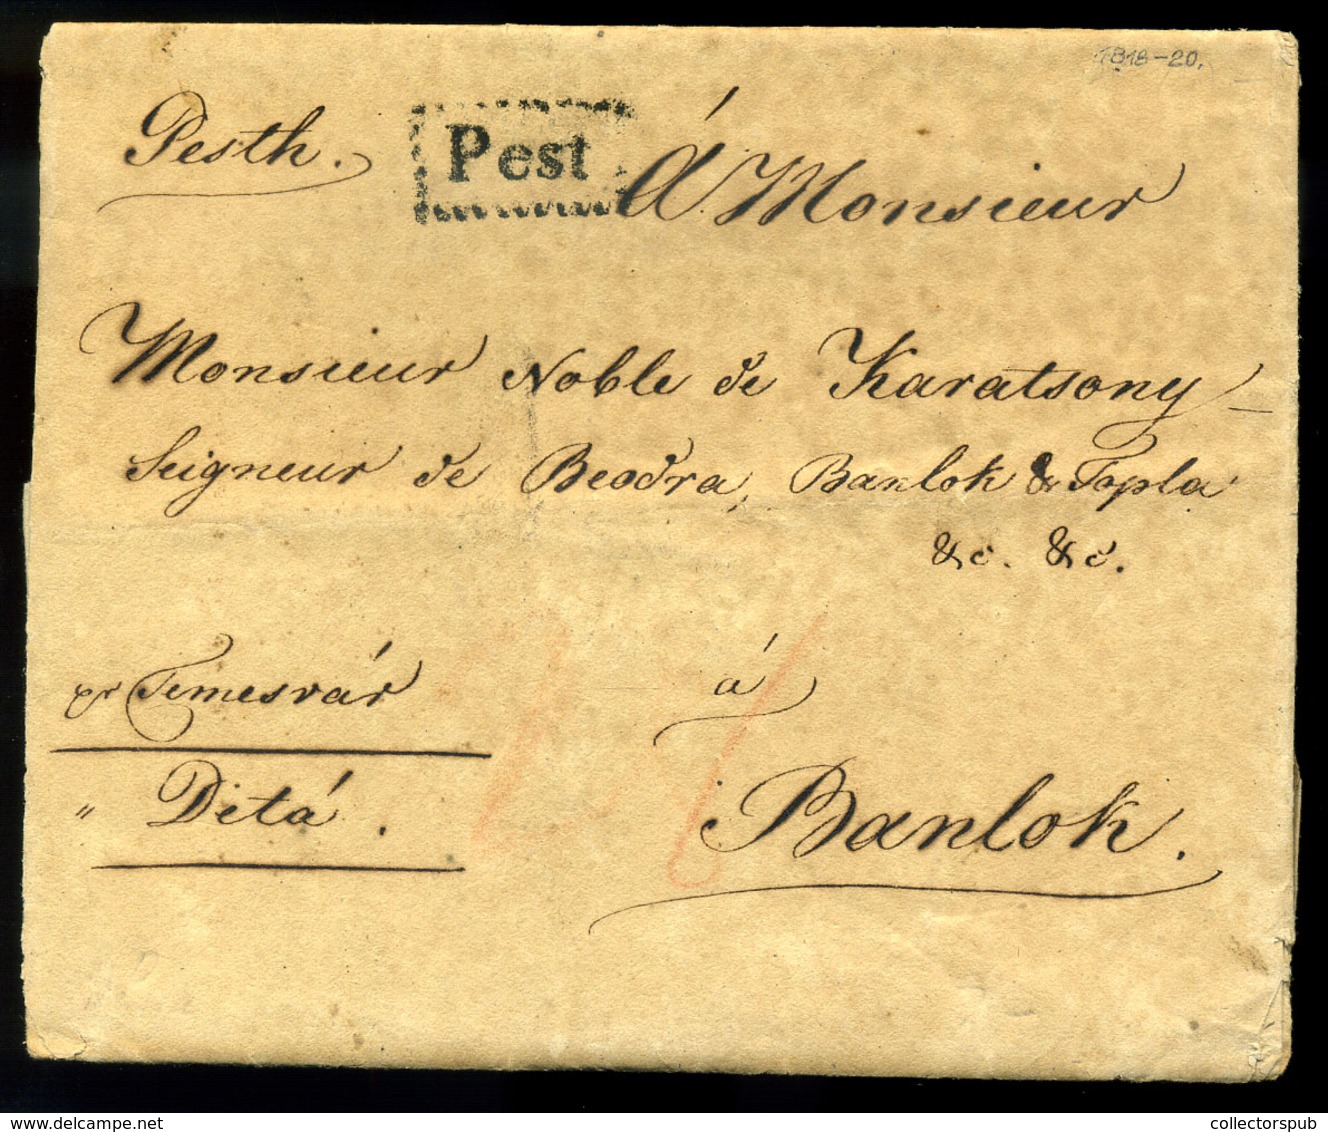 1818-20.
Pesth. Pest Á Monsieur
Monsieur Noble de Karatsony
Seigneur de Beodra, Banlok & Topla
&c. &c.
pr Temesvár á
„ Détá. Banlok.
collectorspub